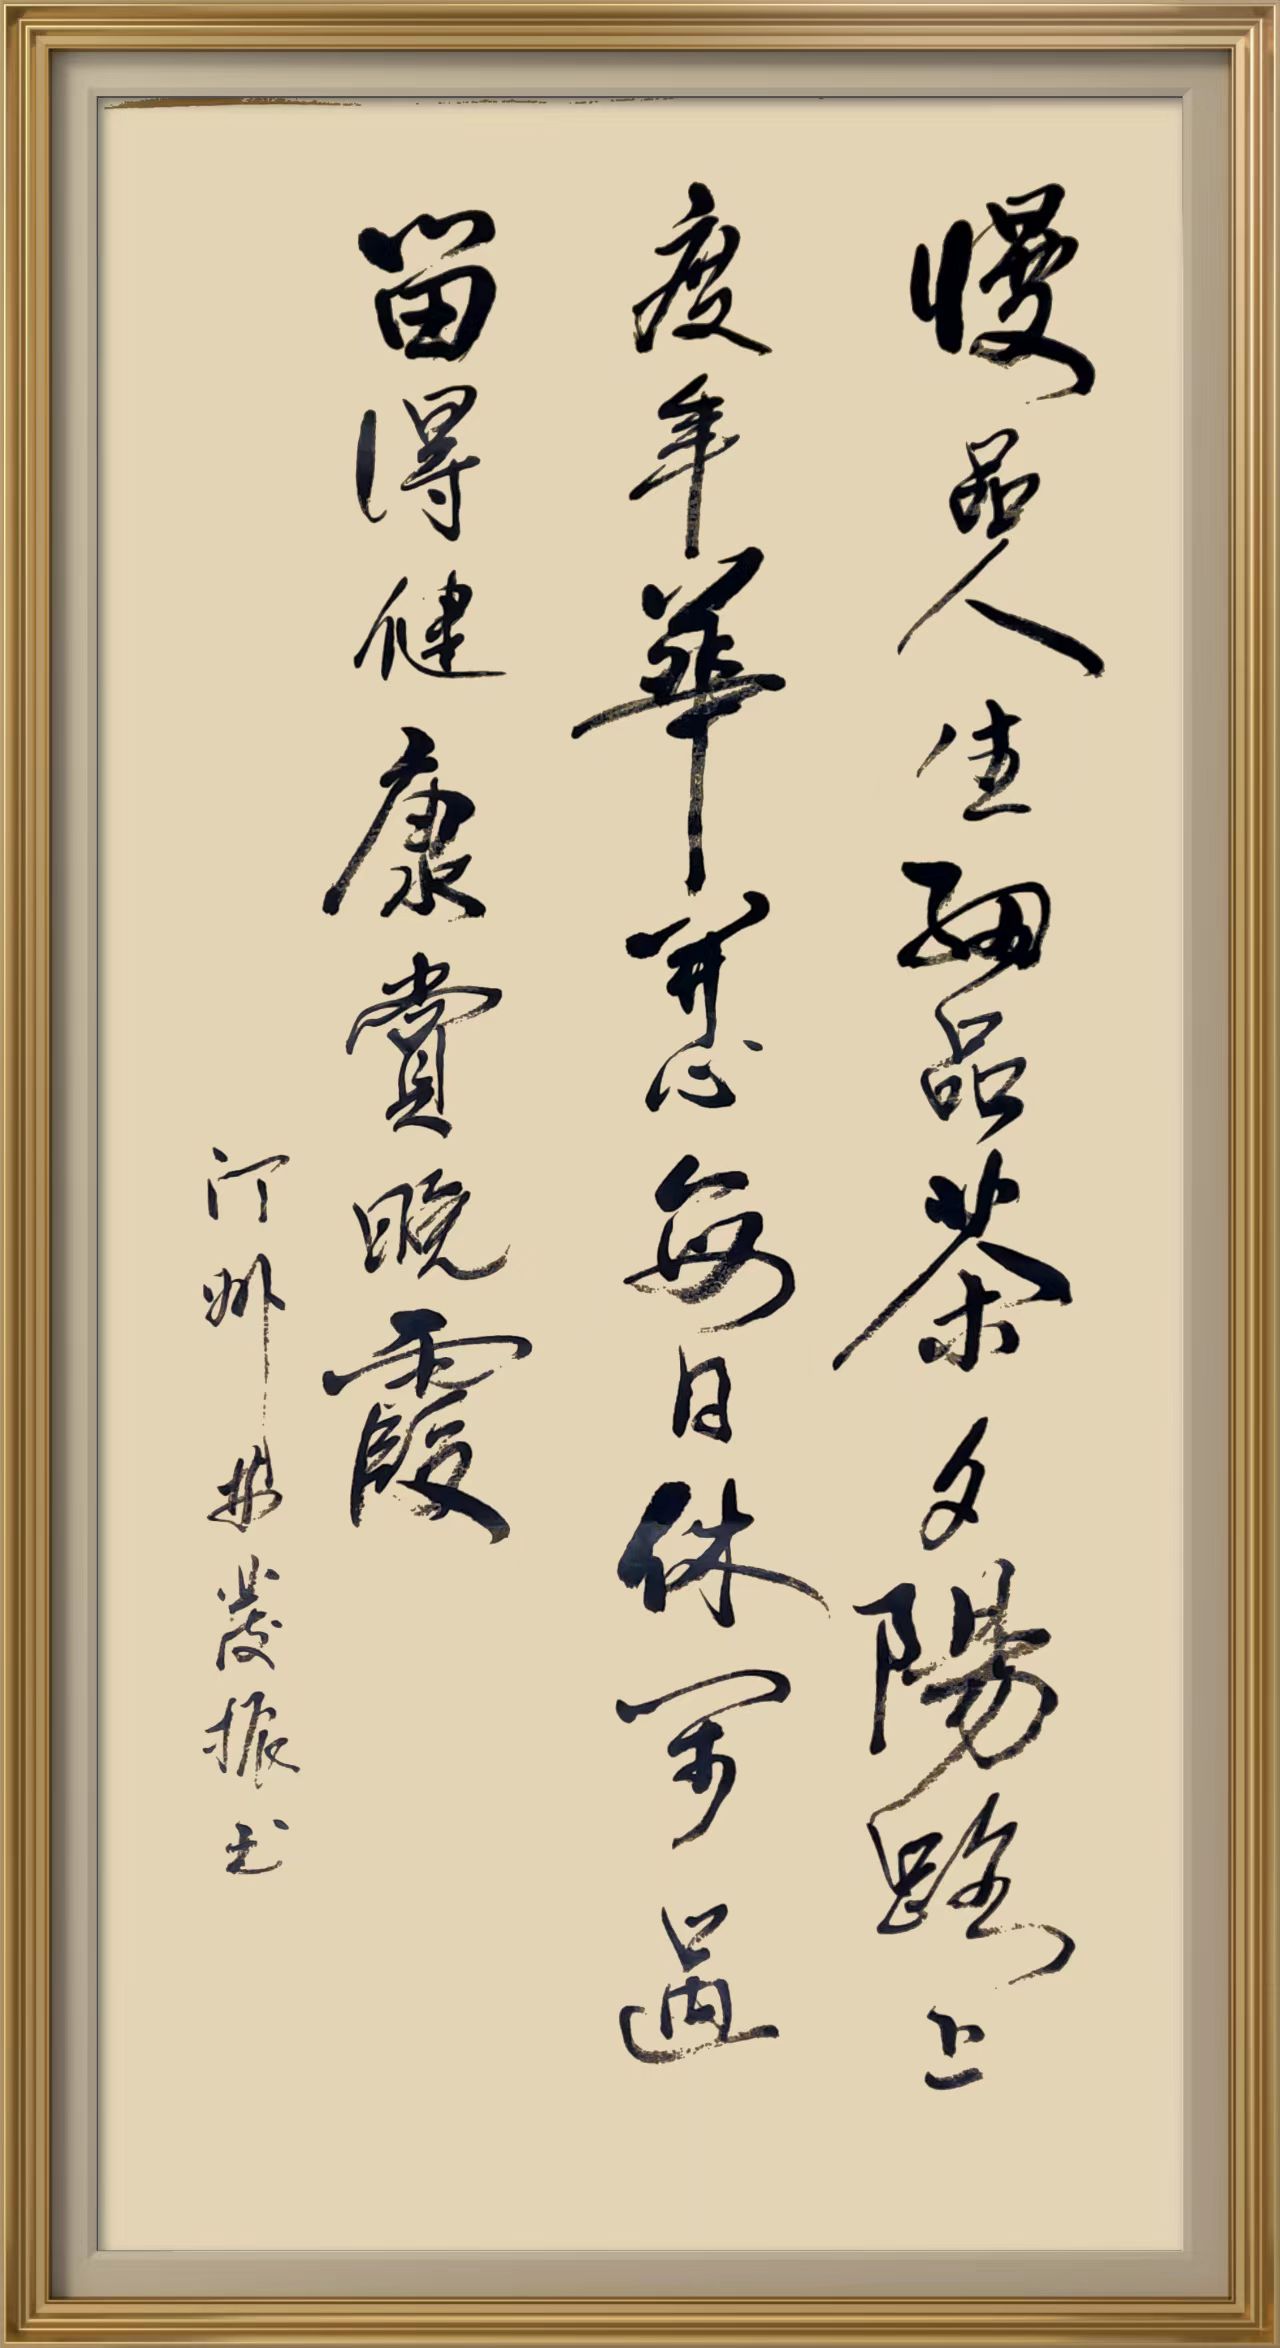 慢品人生細品茶夕陽路上
度年華開心每日休閑過
留得健康賞晚霞
汀州發振书